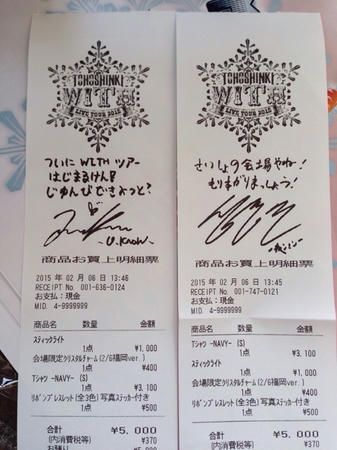 TOHOSHINKI
WITH
LIVE TOUR 2015
ついに WITH ツアー
はじまるけん!
じゅんびできよっと?
U-KNOW
商品お買上明細票
2015年 02月 06日 13:46
RECEIPT No. 001-636-0124
お支払:現金
MID. 4-9999999
商品名 数量 金額
スティックライト
1点 ¥1,000
会場限定クリスタルチャーム(2/6福岡ver.)
1点 ¥400
Tシャツ -NAVY- (S)
1点 ¥3,100
リボンブレスレット(全3色)写真ステッカー付き
1点 ¥500
合計 ¥5,000
(内消費税等) ¥370
TOHOSHINKI
WITH
LIVE TOUR 2015
さいしょの会場やね!
もりあがりましょう!
商品お買上明細票
2015年 02月 06日 13:45
RECEIPT No. 001-747-0121
お支払:現金
MID. 4-9999999
商品名 数量 金額
Tシャツ -NAVY- (S)
1点 ¥3,100
スティックライト
1点 ¥1,000
会場限定クリスタルチャーム(2/6福岡ver.)
1点 ¥400
リボンブレスレット(全3色)写真ステッカー付き
1点 ¥500
合計 ¥5,000
(内消費税等) ¥370